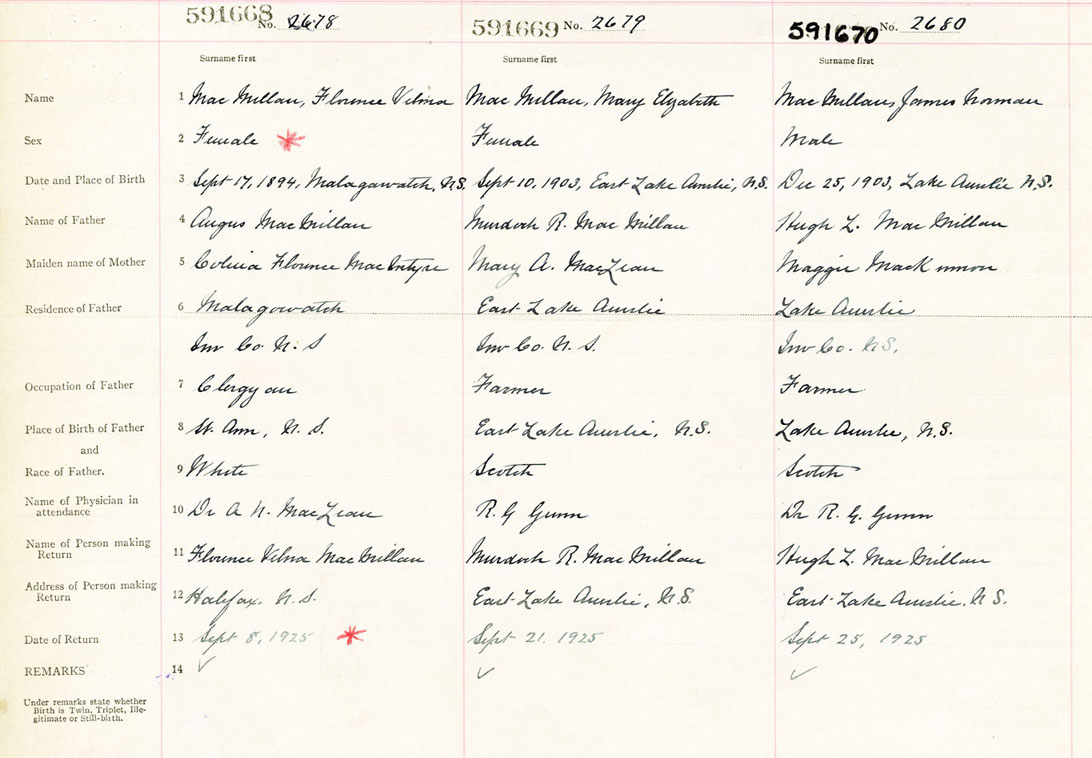 591668 No. 2678 591669 No. 2679 591670 No. 2680
Surname first Surname first Surname first
Name 1 Mac Millan, Florence Velma Mac Millan, Mary Elizabeth Mac Millan, James Norman
Sex 2 Female Female Male
Date and Place of Birth 3 Sept 17, 1894, Malagawatch, N.S. Sept 10, 1903, East Lake Ainslie, N.S. Dec 25, 1903, Lake Ainslie N.S.
Name of Father 4 Angus MacMillan Murdoch R. Mac Millan Hugh L. Mac Millan
Maiden name of Mother 5 Florence MacIntyre Mary A. MacLean Maggie MacKinnon
Residence of Father 6 Malagawatch East Lake Ainslie Lake Ainslie
Inv Co. N. S Inv Co. N. S. Inv Co. N.S.
Occupation of Father 7 Clergyan Farmer Farmer
Place of Birth of Father 8 St. Ann, N. S. East Lake Ainslie, N.S. Lake Ainslie, N.S.
and
Race of Father. 9 White Scotch Scotch
Name of Physician in
attendance 10 Dr A N. MacLean R. G Gunn Dr R. G. Gunn
Name of Person making
Return 11 Florence Velma MacMillan Murdoch R. MacMillan Hugh L. MacMillan
Address of Person making
Return 12 Halifax. N.S. East Lake Ainslie, N.S. East Lake Ainslie. N.S.
Date of Return 13 Sept 8, 1925 Sept 21. 1925 Sept 25, 1925
REMARKS 14 ✓ ✓ ✓
Under remarks state whether
Birth is Twin, Triplet, Ille-
gitimate or Still-birth.